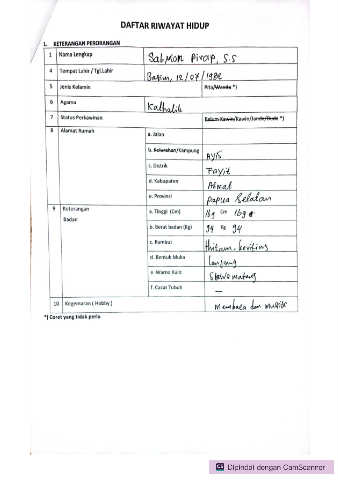 DAFTAR RIWAYAT HIDUP
1. KETERANGAN PERORANGAN
1 Nama Lengkap Salmon Pirap, S.S
4 Tempat Lahir / Tgl.Lahir 12/07/1982
5 Jenis Kelamin Pria/Wanita *)
6 Agama Katholik
7 Status Perkawinan Belum Kawin/Kawin/Janda/Duda *)
8 Alamat Rumah a. Jalan
b. Kelurahan/Kampung Ayis
c. Distrik Fayit
d. Kabupaten Asmat
e. Provinsi Papua Selatan
9 Keterangan Badan a. Tinggi (Cm) Cm
b. Berat badan (Kg) Kg
c. Rambut Hitam, keriting
d. Bentuk Muka Lonjong
e. Warna Kulit Sawo matang
f. Cacat Tubuh —
10 Kegemaran ( Hobby ) Membaca dan
*) Coret yang tidak perlu
Dipindai dengan CamScanner